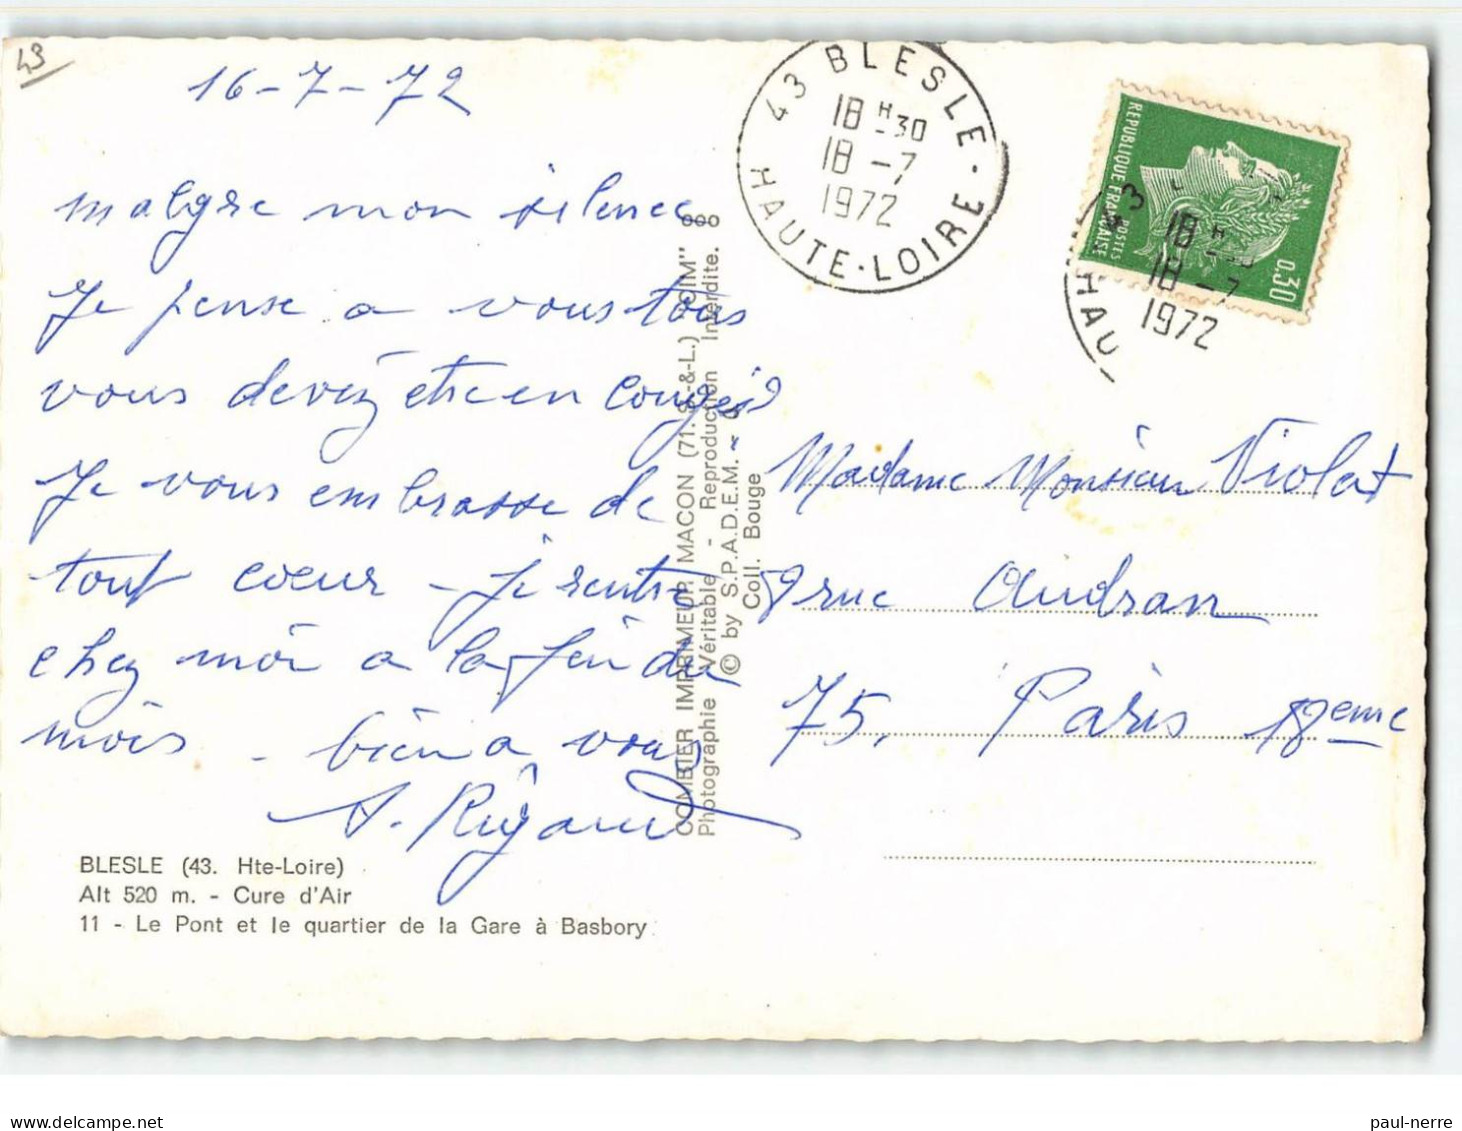 43
16-7-72
malgre mon silence
Je pense a vous tous
vous devez être en congés
Je vous embrasse de
tout coeur - je rentre
chez moi a la fin du
mois - bien a vous
A. Rigaud
BLESLE (43. Hte-Loire)
Alt 520 m. - Cure d'Air
11 - Le Pont et le quartier de la Gare à Basbory
COMBIER IMPRIMEUR MACON (71. S.-&-L.) "CIM"
Photographie Véritable - Reproduction Interdite.
© by S.P.A.D.E.M.
Coll. Bouge
43 BLESLE
18 H-30
18 -7
1972
HAUTE-LOIRE
REPUBLIQUE FRANÇAISE
POSTES
0,30
43
18 H
18 -7
1972
HAU
Madame Monsieur Violat
9 rue Audran
75. Paris 18eme
paul-nerre